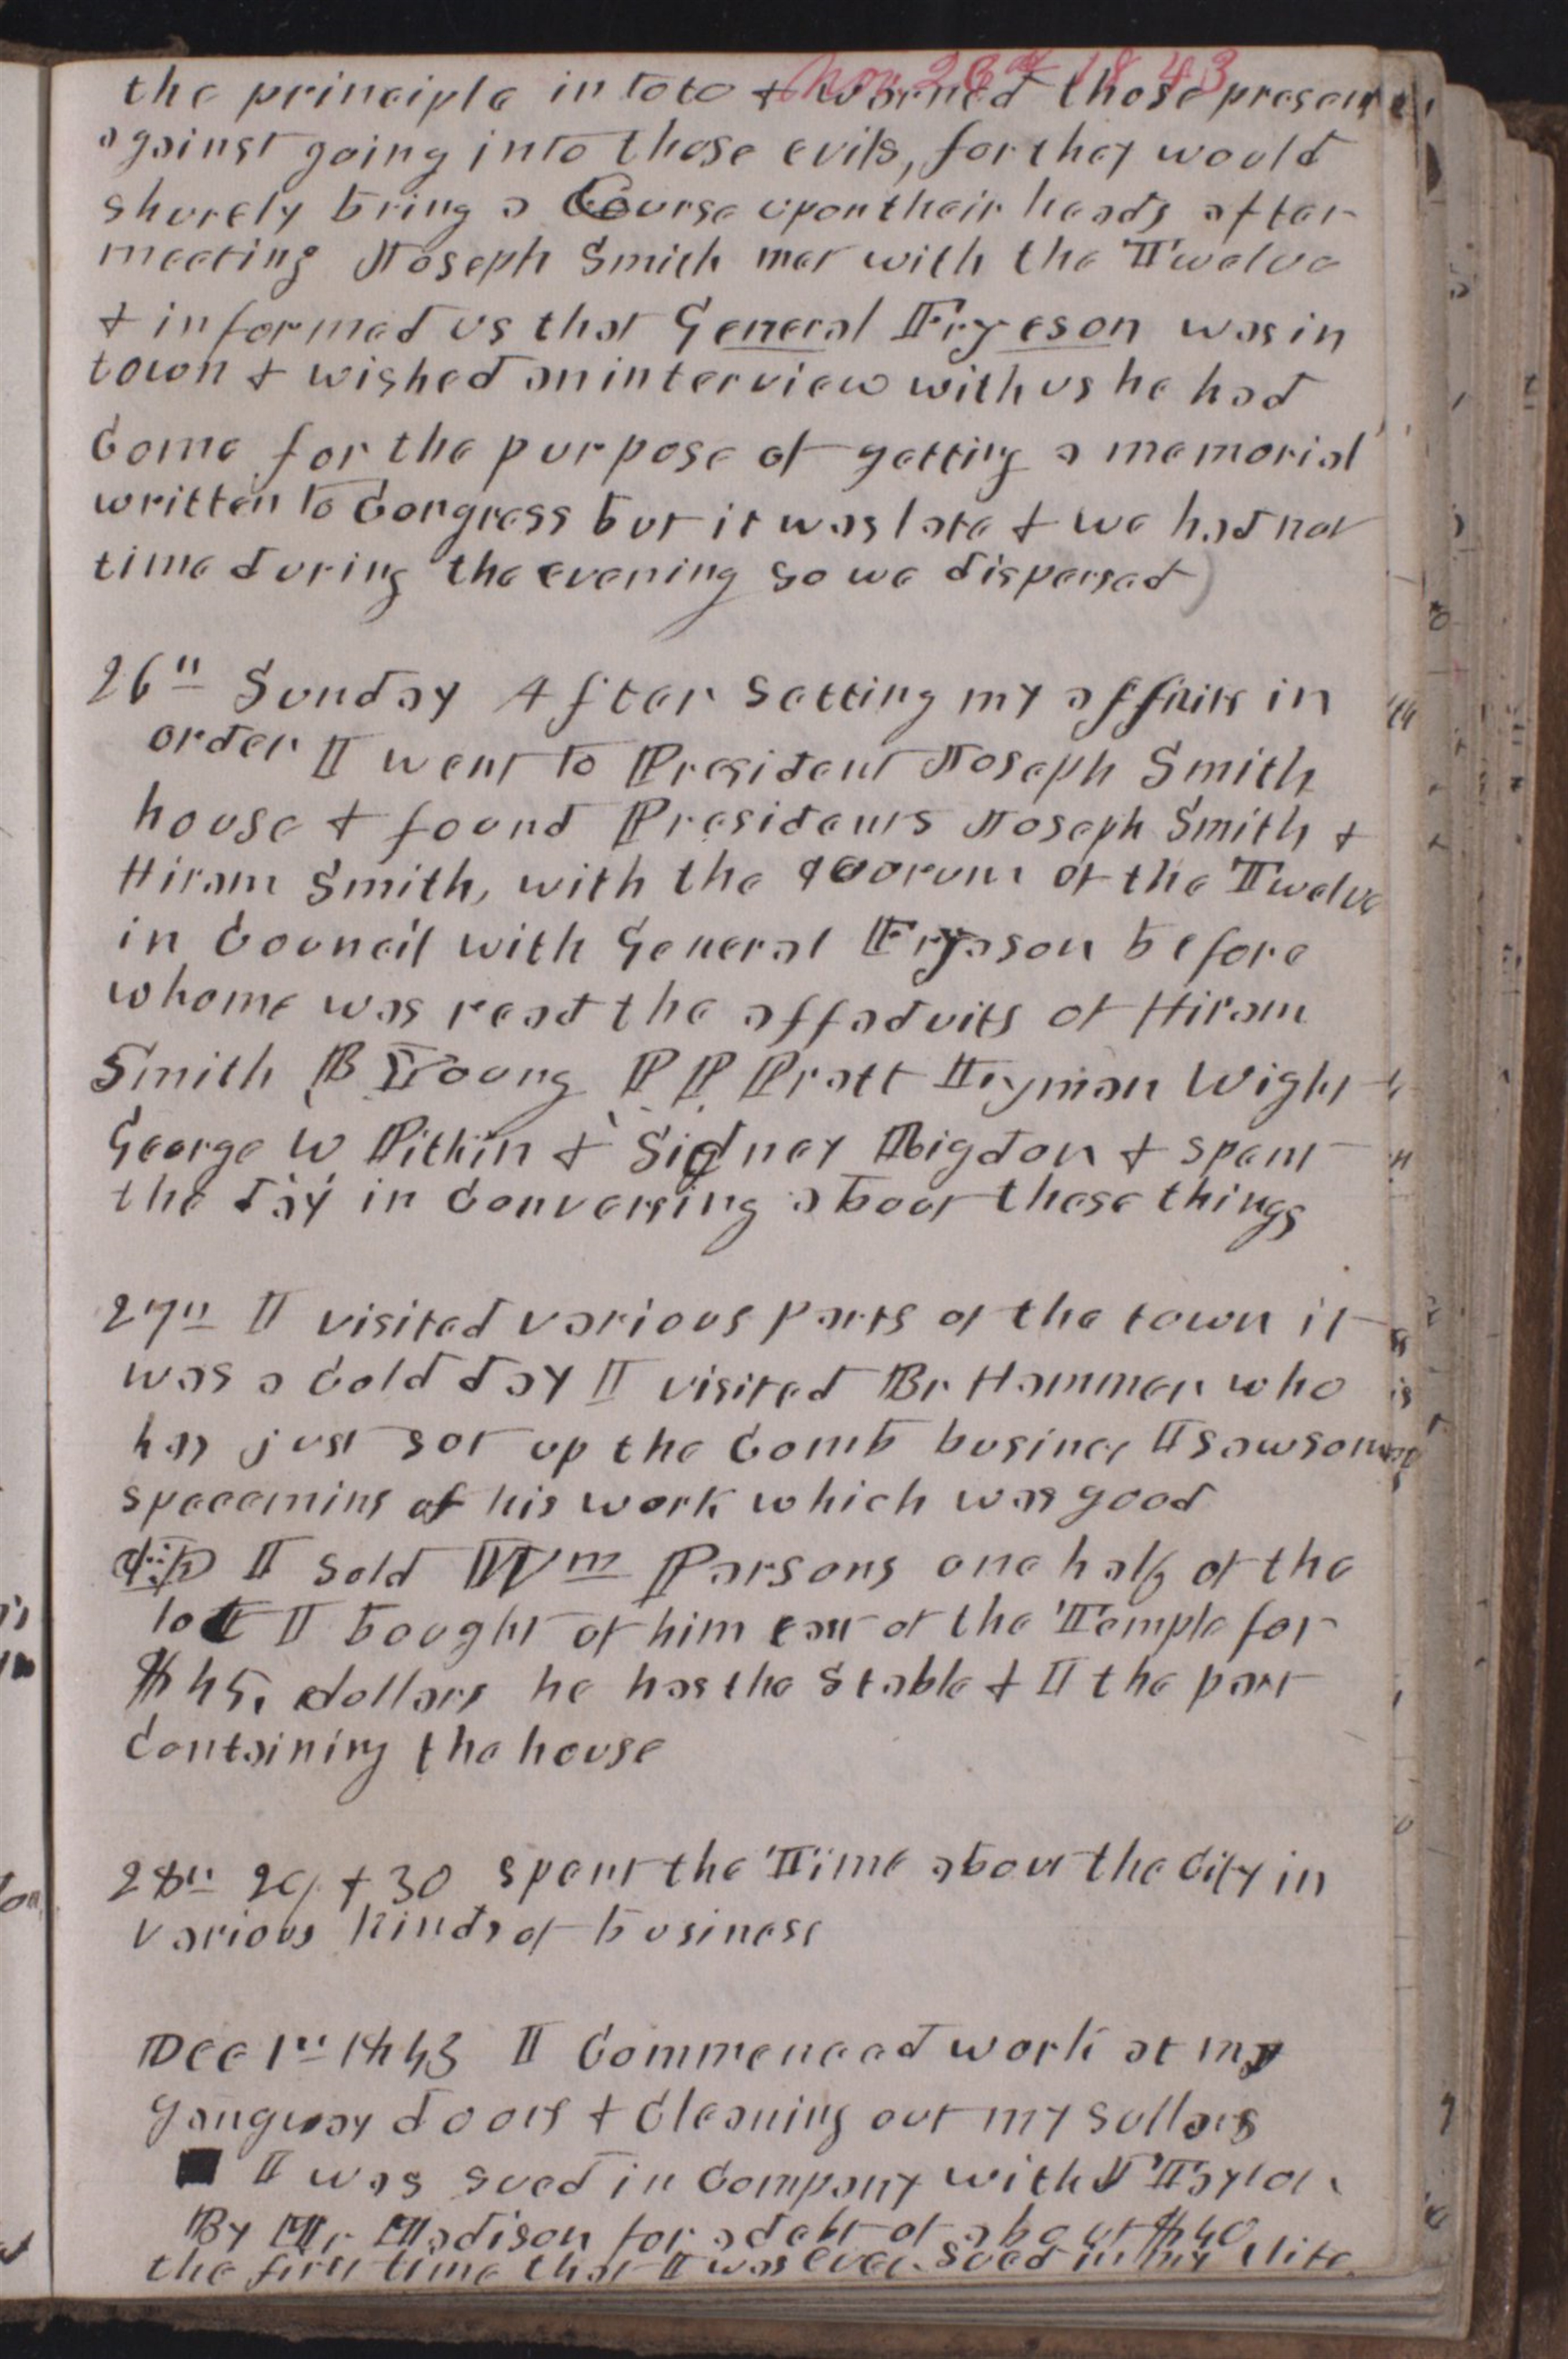 Nov. 26th 1843
the principle in toto & warned those present
against going into those evils, for they would
shurely bring a Course upon their heads after
meeting Joseph Smith met with the Twelve
& informed us that General Fryeson was in
town & wished an interview with us he had
Come for the purpose of getting a memorial
written to Congress but it was late & we had not
time during the evening so we dispersed
26th Sunday After setting my affairs in
order I went to President Joseph Smith
house & found Presidents Joseph Smith &
Hiram Smith, with the quorum of the Twelve
in Council with General Fryason before
whome was read the affadvits of Hiram
Smith B Young P P Pratt Lyman Wight
George W Pitkin & Sidney Rigdon & spent
the day in Conversing about these things
27th I visited various parts of the town it
was a Cold day I visited Br Hammer who
has just sot up the Comb busines I saw some
specemins of his work which was good
I sold Wm Parsons one half of the
lot I bought of him east of the Temple for
$45, dollars he has the Stable & I the part
Containing the house
28th 29 & 30 spent the Time about the City in
various kinds of business
Dec 1st 1843 I Commenced work at my
gangway doors & Cleaning out my sullars
I was sued in Company with J Taylor
By Mr Madison for a debt of about $40
the first time that I was ever sued in my life